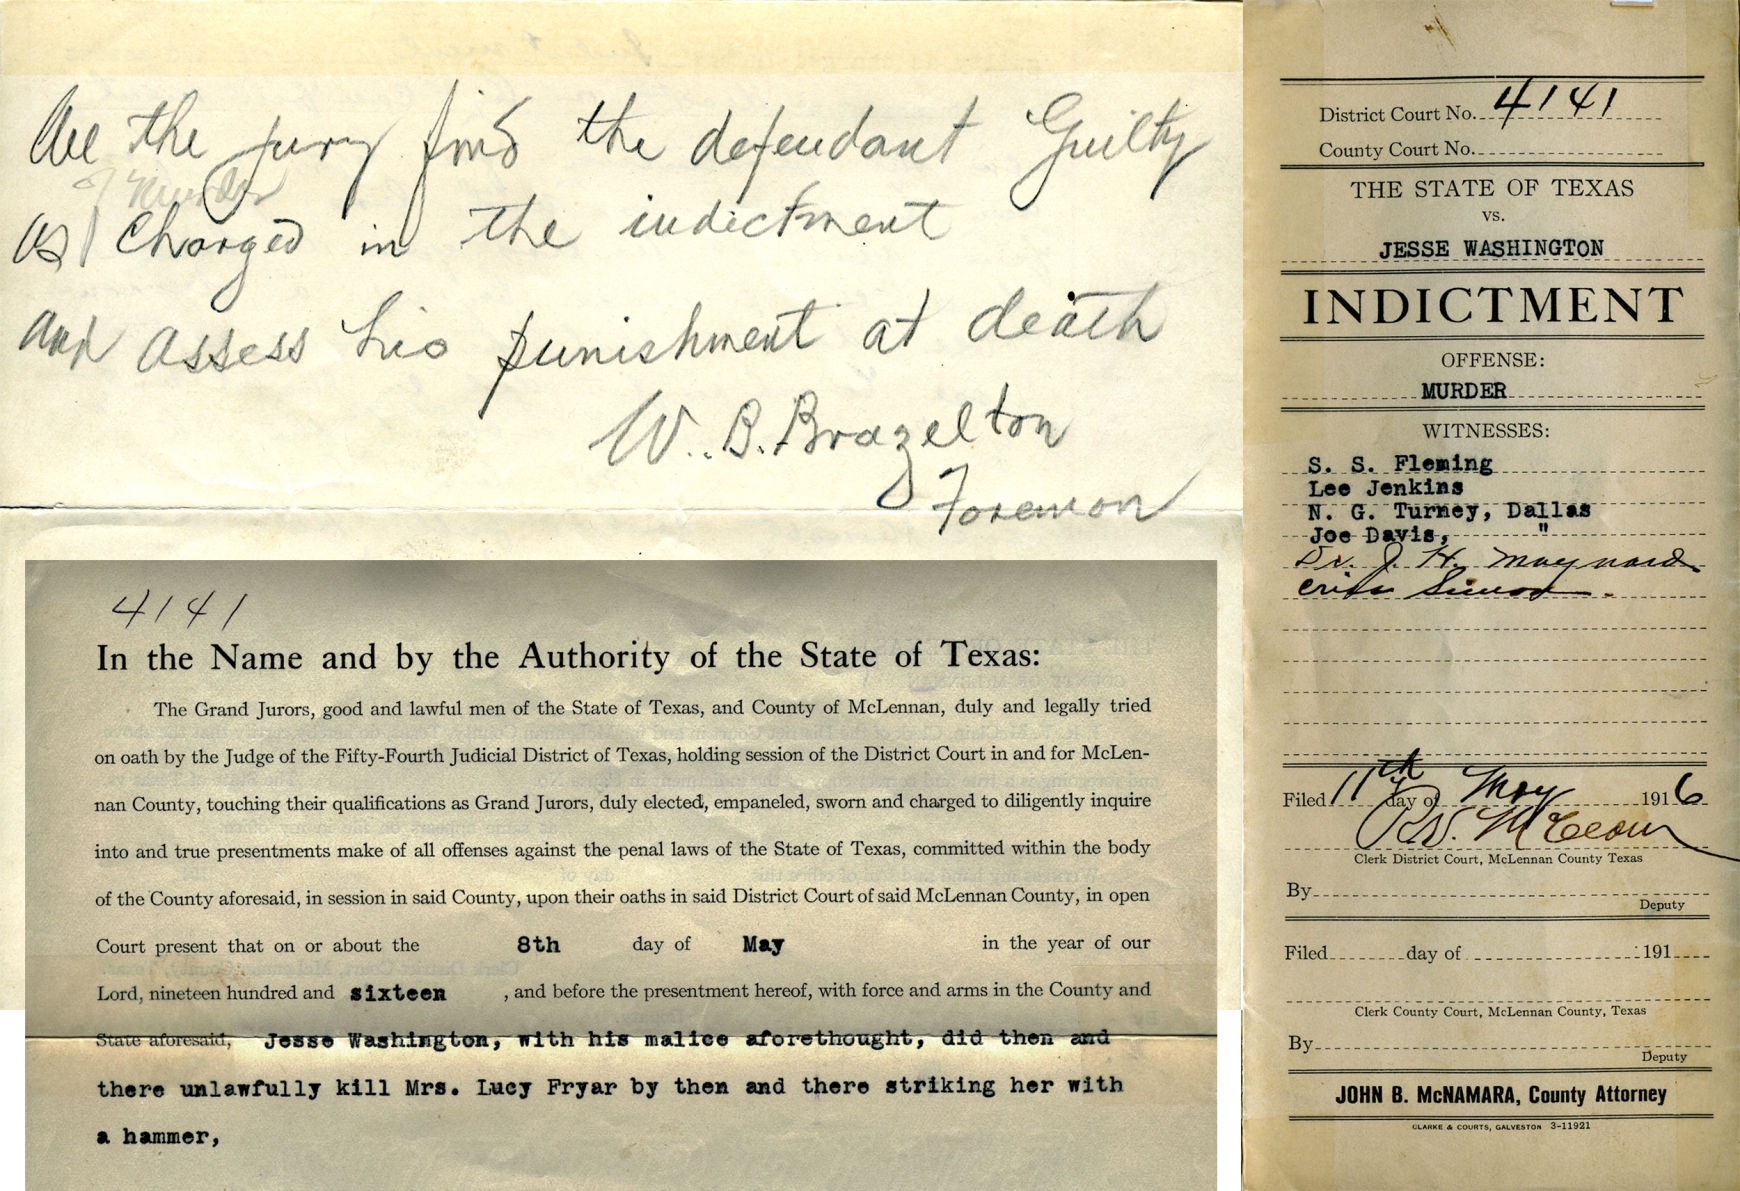 We the jury find the defendant Guilty
of Murder
as charged in the indictment
and assess his punishment at death
W. B. Brazelton
Foreman
4141
In the Name and by the Authority of the State of Texas:
The Grand Jurors, good and lawful men of the State of Texas, and County of McLennan, duly and legally tried
on oath by the Judge of the Fifty-Fourth Judicial District of Texas, holding session of the District Court in and for McLen-
nan County, touching their qualifications as Grand Jurors, duly elected, empaneled, sworn and charged to diligently inquire
into and true presentments make of all offenses against the penal laws of the State of Texas, committed within the body
of the County aforesaid, in session in said County, upon their oaths in said District Court of said McLennan County, in open
Court present that on or about the 8th day of May in the year of our
Lord, nineteen hundred and sixteen , and before the presentment hereof, with force and arms in the County and
State aforesaid, Jesse Washington, with his malice aforethought, did then and
there unlawfully kill Mrs. Lucy Fryar by then and there striking her with
a hammer,
District Court No. 4141
County Court No.
THE STATE OF TEXAS
VS.
JESSE WASHINGTON
INDICTMENT
OFFENSE:
MURDER
WITNESSES:
S. S. Fleming
Lee Jenkins
N. G. Turney, Dallas
Joe Davis, "
Dr. J. H. Maynard
Filed 11th day of May 1916
R. V. McClain
Clerk District Court, McLennan County Texas
By
Deputy
Filed day of 191
Clerk County Court, McLennan County, Texas
By
Deputy
JOHN B. McNAMARA, County Attorney
CLARKE & COURTS, GALVESTON 3-11921